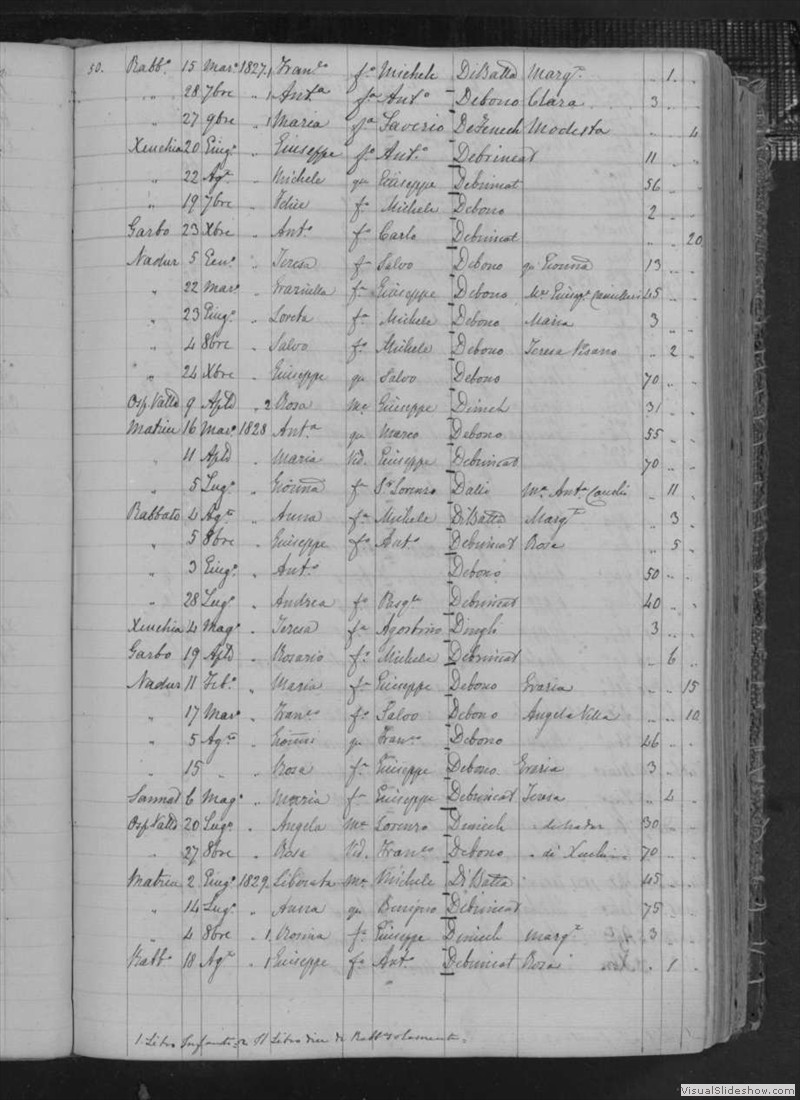 50. Rabb.o 15 Mar.o 1827 1 Fran.co f.o Michele DiBatta Marg.ta " 1 "
" 28 7bre " 1 Ant.a f.a Ant.o Debono Clara 3 " "
" 27 9bre " 1 Maria f.a Saverio DeFenech Modesta " " 4
Xeuchia 20 Giug.o " Giuseppe f.o Ant.o Debrincat 11 " "
" 22 Ag.to " Michele qu Giuseppe Debrincat 56 " "
" 19 7bre " Felice f.o Michele Debono 2 " "
Garbo 23 Xbre " Ant.o f.o Carlo Debrincat " " 20
Nadur 5 Gen.o " Teresa f.a Salvo Debono qu Gionna 13 " "
" 22 Mar.o " Graziulla f.a Giuseppe Debono M.e Giusp.e 45 " "
" 23 Giug.o " Loreta f.a Michele Debono Maria 3 " "
" 4 8bre " Salvo f.o Michele Debono Teresa Pisano " 2 "
" 24 Xbre " Giuseppe qu Salvo Debono 70 " "
Osp. Valld 9 Aple " 2 Rosa M.e Giuseppe Dimech 31 " "
Matrice 16 Mar.o 1828 Ant.a qu Marco Debono 55 " "
" 11 Aple " Maria Vid. Giuseppe Debrincat 70 " "
" 5 Lug.o " Gionna f.a S.r Lorenzo Dalis M.a Ant.a " 11 "
Rabbato 4 Ag.to " Anna f.a Michele DiBatta Marg.ta " 3 "
" 5 8bre " Giuseppe f.o Ant.o Debrincat Rosa " 5 "
" 3 Giug.o " Ant.o Debono 50 " "
" 28 Lug.o " Andrea f.o Pasq.le Debrincat 40 " "
Xeuchia 4 Mag.o " Teresa f.a Agostino Dingli 3 " "
Garbo 19 Aple " Rosario f.o Michele Debrincat " 6 "
Nadur 11 Feb.o " Maria f.a Giuseppe Debono Grazia " " 15
" 17 Mar.o " Fran.co f.o Salvo Debono Angela Villa " " 10
" 5 Ag.to " Gionni qu Fran.co Debono 46 " "
" 15 " " Rosa f.a Giuseppe Debono Grazia 3 " "
Sannat 6 Mag.o " Maria f.a Giuseppe Debrincat Teresa " 4 "
Osp Valld 20 Lug.o " Angela M.e Lorenzo Dimech di Nadur 30 " "
" 27 8bre " Rosa Vid. Fran.co Debono " di Xeuchia 70 " "
Matrice 2 Giug.o 1829 Liberata M.e Michele DiBatta 45 " "
" 14 Lug.o " Anna qu Benigno Debrincat 75 " "
" 4 8bre " 1 Rosina f.a Giuseppe Dimech Marg.ta " 3 "
Rabb.o 18 Ag.to " 1 Giuseppe f.o Ant.o Debrincat Rosa " 1 "
1. Libro Infanti 2. Il Libro di Rabb.o solamente.
VisualSlideshow.com